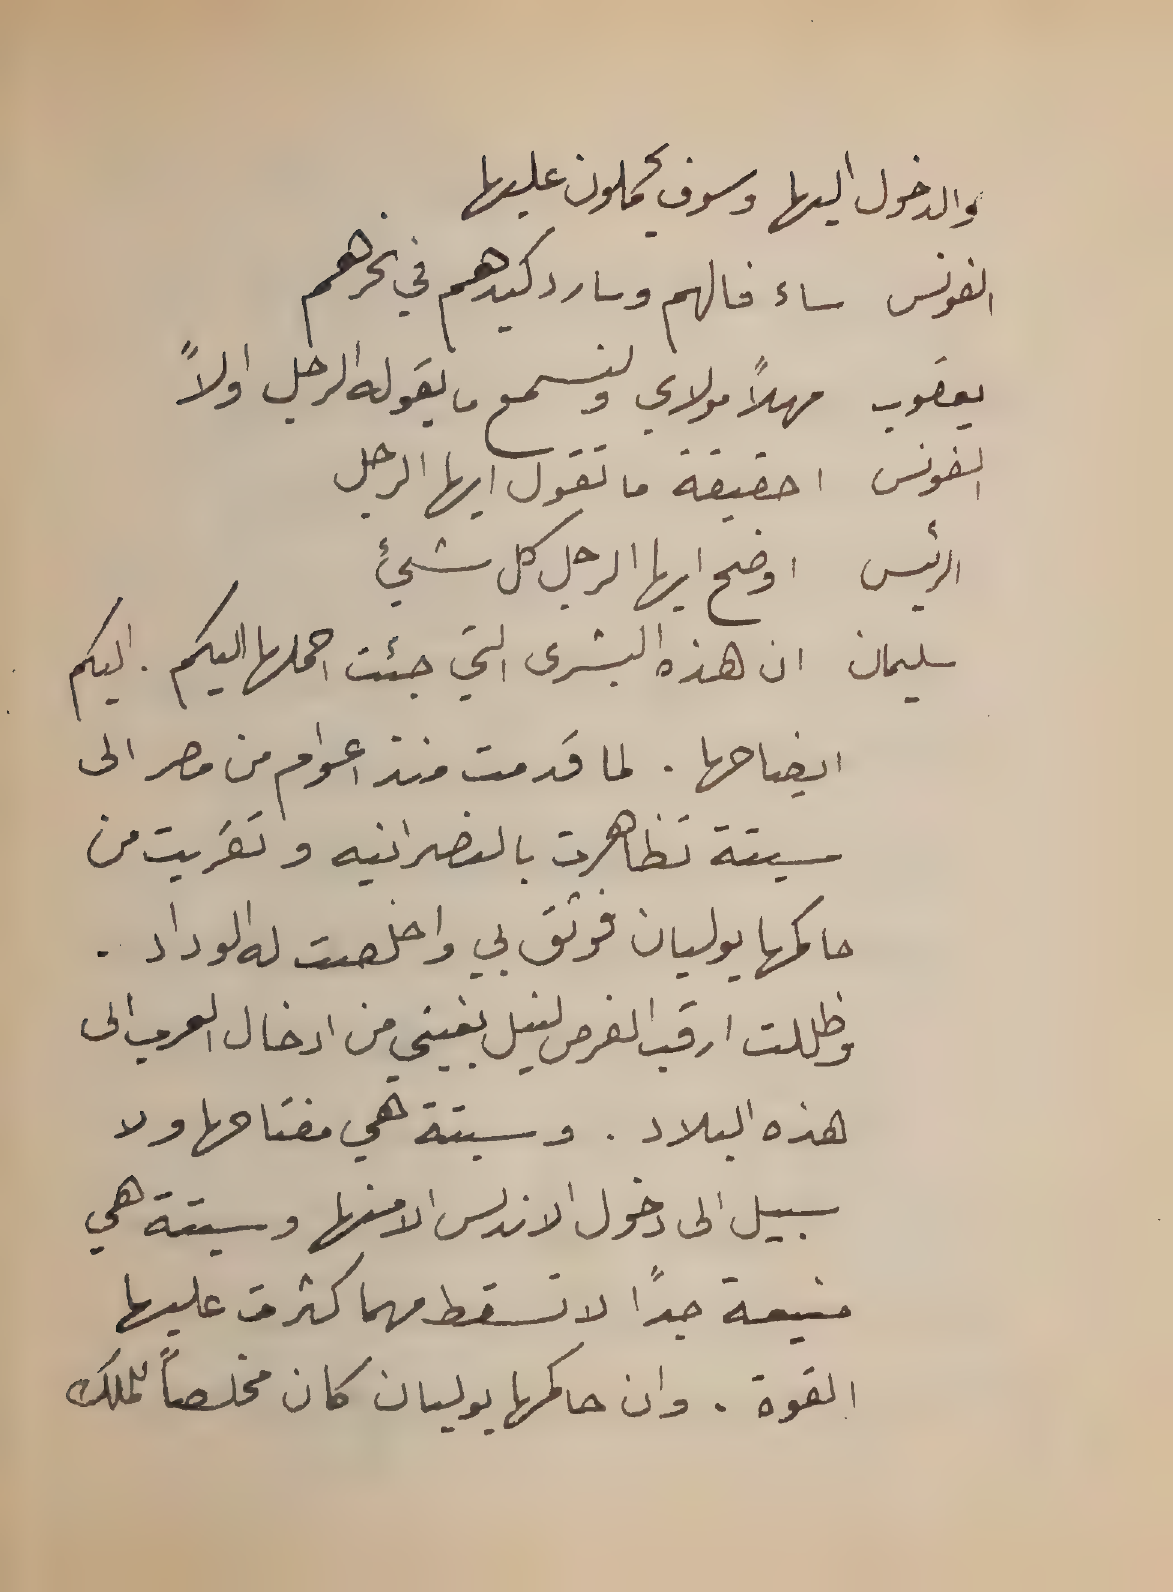 والدخول اليها وسوف يحملون عليها
الفونس ساء فالهم وسارد كيدهم في نحرهم
يعقوب مهلاً مولاي ولنسمع ما يقوله الرجل اولاً
الفونس احقيقة ما تقول ايها الرجل
الرئيس اوضح ايها الرجل كل شيئ
سليمان ان هذه البشرى التي جئت احملها اليكم . اليكم
ايضاحها . لما قدمت منذ اعوام من مصر الى
سبتة تظاهرت بالنصرانيه وتقربت من
حاكمها يوليان فوثق بي واخلصت له الوداد .
وظللت ارقب الفرص لنيل بغيتي من ادخال العرب الى
هذه البلاد . وسبتة هي مفتاحها ولا
سبيل الى دخول الاندلس الا منها وسبتة هي
منيعة جداً لا تسقط مهما كثرت عليها
القوة . وان حاكمها يوليان كان مخلصاً للملك